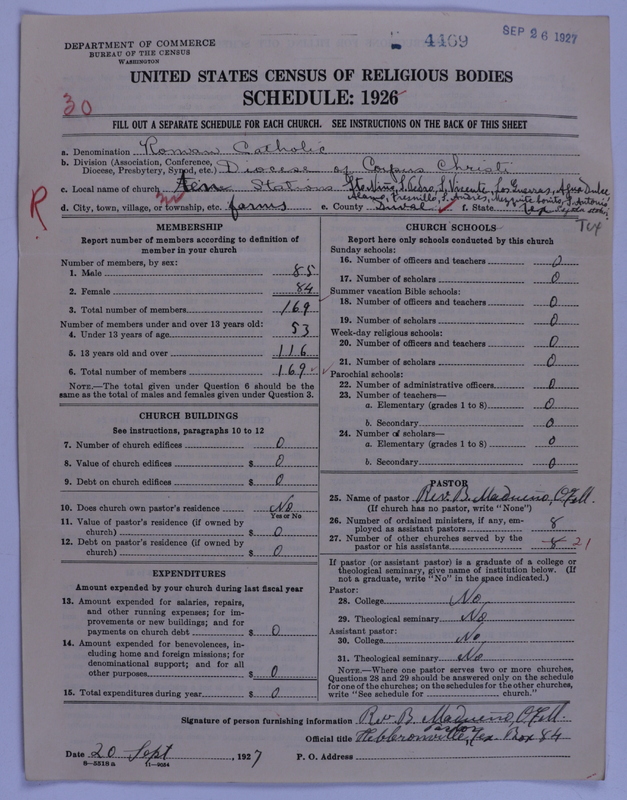 DEPARTMENT OF COMMERCE
BUREAU OF THE CENSUS
WASHINGTON
4469
SEP 26 1927
UNITED STATES CENSUS OF RELIGIOUS BODIES
SCHEDULE: 1926
30
FILL OUT A SEPARATE SCHEDULE FOR EACH CHURCH. SEE INSTRUCTIONS ON THE BACK OF THIS SHEET
a. Denomination Roman Catholic
b. Division (Association, Conference,
Diocese, Presbytery, Synod, etc.) Diocese of Corpus Christi
c. Local name of church Ten Stations Sto Niño, S. Pedro, S. Vicente, Los Guerras, Agua Dulce
Alamo, Fresnillo, S. Andres, Mezquite Bonito, S. Antonio
d. City, town, village, or township, etc. farms e. County Duval f. State Tex
R
Tex
MEMBERSHIP
Report number of members according to definition of
member in your church
Number of members, by sex:
1. Male 85
2. Female 84
3. Total number of members 169
Number of members under and over 13 years old:
4. Under 13 years of age 53
5. 13 years old and over 116
6. Total number of members 169
NOTE.—The total given under Question 6 should be
same as the total of males and females given under Question 3.
CHURCH BUILDINGS
See instructions, paragraphs 10 to 12
7. Number of church edifices 0
8. Value of church edifices $ 0
9. Debt on church edifices $ 0
10. Does church own pastor's residence No
Yes or No
11. Value of pastor's residence (if owned by
church) $ 0
12. Debt on pastor's residence (if owned by
church) $ 0
EXPENDITURES
Amount expended by your church during last fiscal year
13. Amount expended for salaries, repairs,
and other running expenses; for im-
provements or new buildings; and for
payments on church debt $ 0
14. Amount expended for benevolences, in-
cluding home and foreign missions; for
denominational support; and for all
other purposes $ 0
15. Total expenditures during year $ 0
CHURCH SCHOOLS
Report here only schools conducted by this church
Sunday schools:
16. Number of officers and teachers 0
17. Number of scholars 0
Summer vacation Bible schools:
18. Number of officers and teachers 0
19. Number of scholars 0
Week-day religious schools:
20. Number of officers and teachers 0
21. Number of scholars 0
Parochial schools:
22. Number of administrative officers 0
23. Number of teachers—
a. Elementary (grades 1 to 8) 0
b. Secondary 0
24. Number of scholars—
a. Elementary (grades 1 to 8) 0
b. Secondary 0
PASTOR
25. Name of pastor Rev. B. Madueño, O.F.M.
(If church has no pastor, write "None")
26. Number of ordained ministers, if any, em-
ployed as assistant pastors 8
27. Number of other churches served by the
pastor or his assistants 8 21
If pastor (or assistant pastor) is a graduate of a college or
theological seminary, give name of institution below. (If
not a graduate, write "No" in the space indicated.)
Pastor:
28. College No
29. Theological seminary No
Assistant pastor:
30. College No
31. Theological seminary No
NOTE.—Where one pastor serves two or more churches,
Questions 28 and 29 should be answered only on the schedule
for one of the churches; on the schedules for the other churches,
write "See schedule for church."
Signature of person furnishing information Rev. B. Madueño, O.F.M.
Official title pastor
Hebbronville, Tex. Box 84
Date 20 Sept, 1927 P. O. Address
8-5518a 11-9054